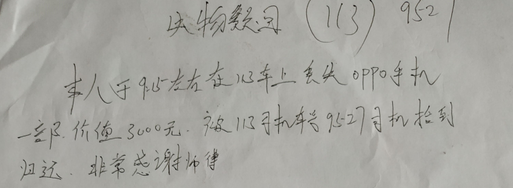 失物繁询 (113) 9527
本人于9.15左右在113车上丢失OPPO手机
一部.价值3000元.被113司机车号9527司机拾到
归还.非常感谢师傅